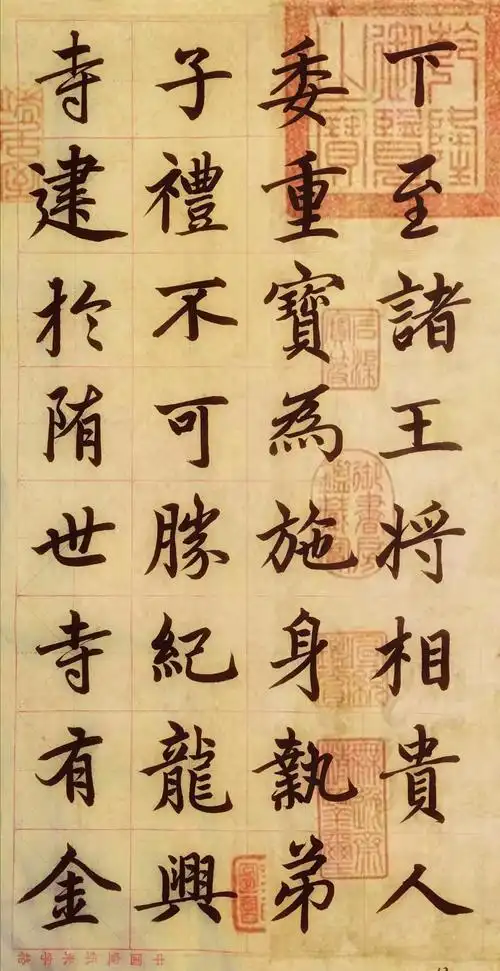 下至諸王将相貴人
委重寶為施身執弟
子禮不可勝紀龍興
寺建於隋世寺有金